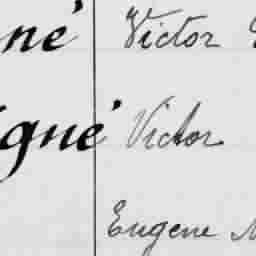 né Victor
gné Victor
Eugene